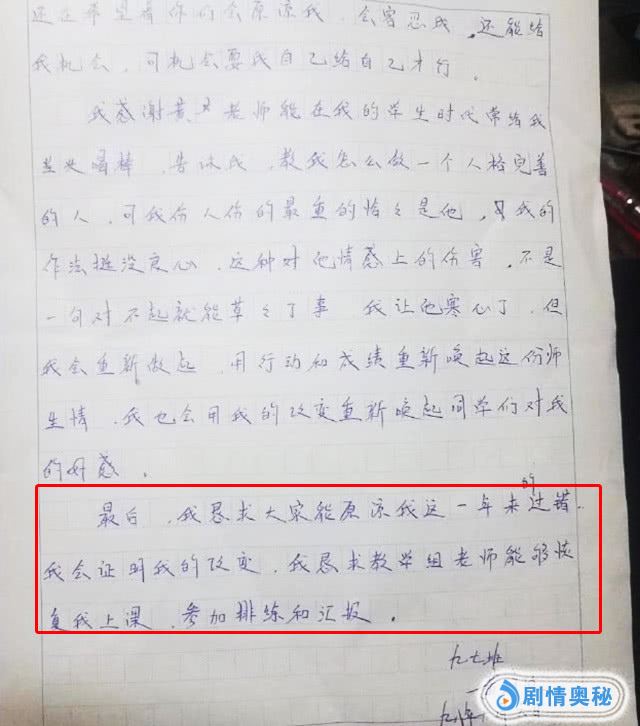 还在希望着你们会原谅我、会容忍我、还能给
我机会，可机会要我自己给自己才行。
我感谢黄 老师能在我的学生时代常给我
当头喝棒，告诉我，教我怎么做一个人格完善
的人，可我伤人伤的最重的恰々是他，我的
作法挺没良心，这种对他情感上的伤害，不是
一句对不起就能草々了事 我让他寒心了，但
我会重新做起，用行动和成绩重新唤起这份师
生情，我也会用我的改变重新唤起同学们对我
的好感。
最后，我恳求大家能原谅我这一年来的过错，
我会证明我的改变，我恳求教学组老师能够恢
复我上课，参加排练和汇报。
九七班
剧情奥秘